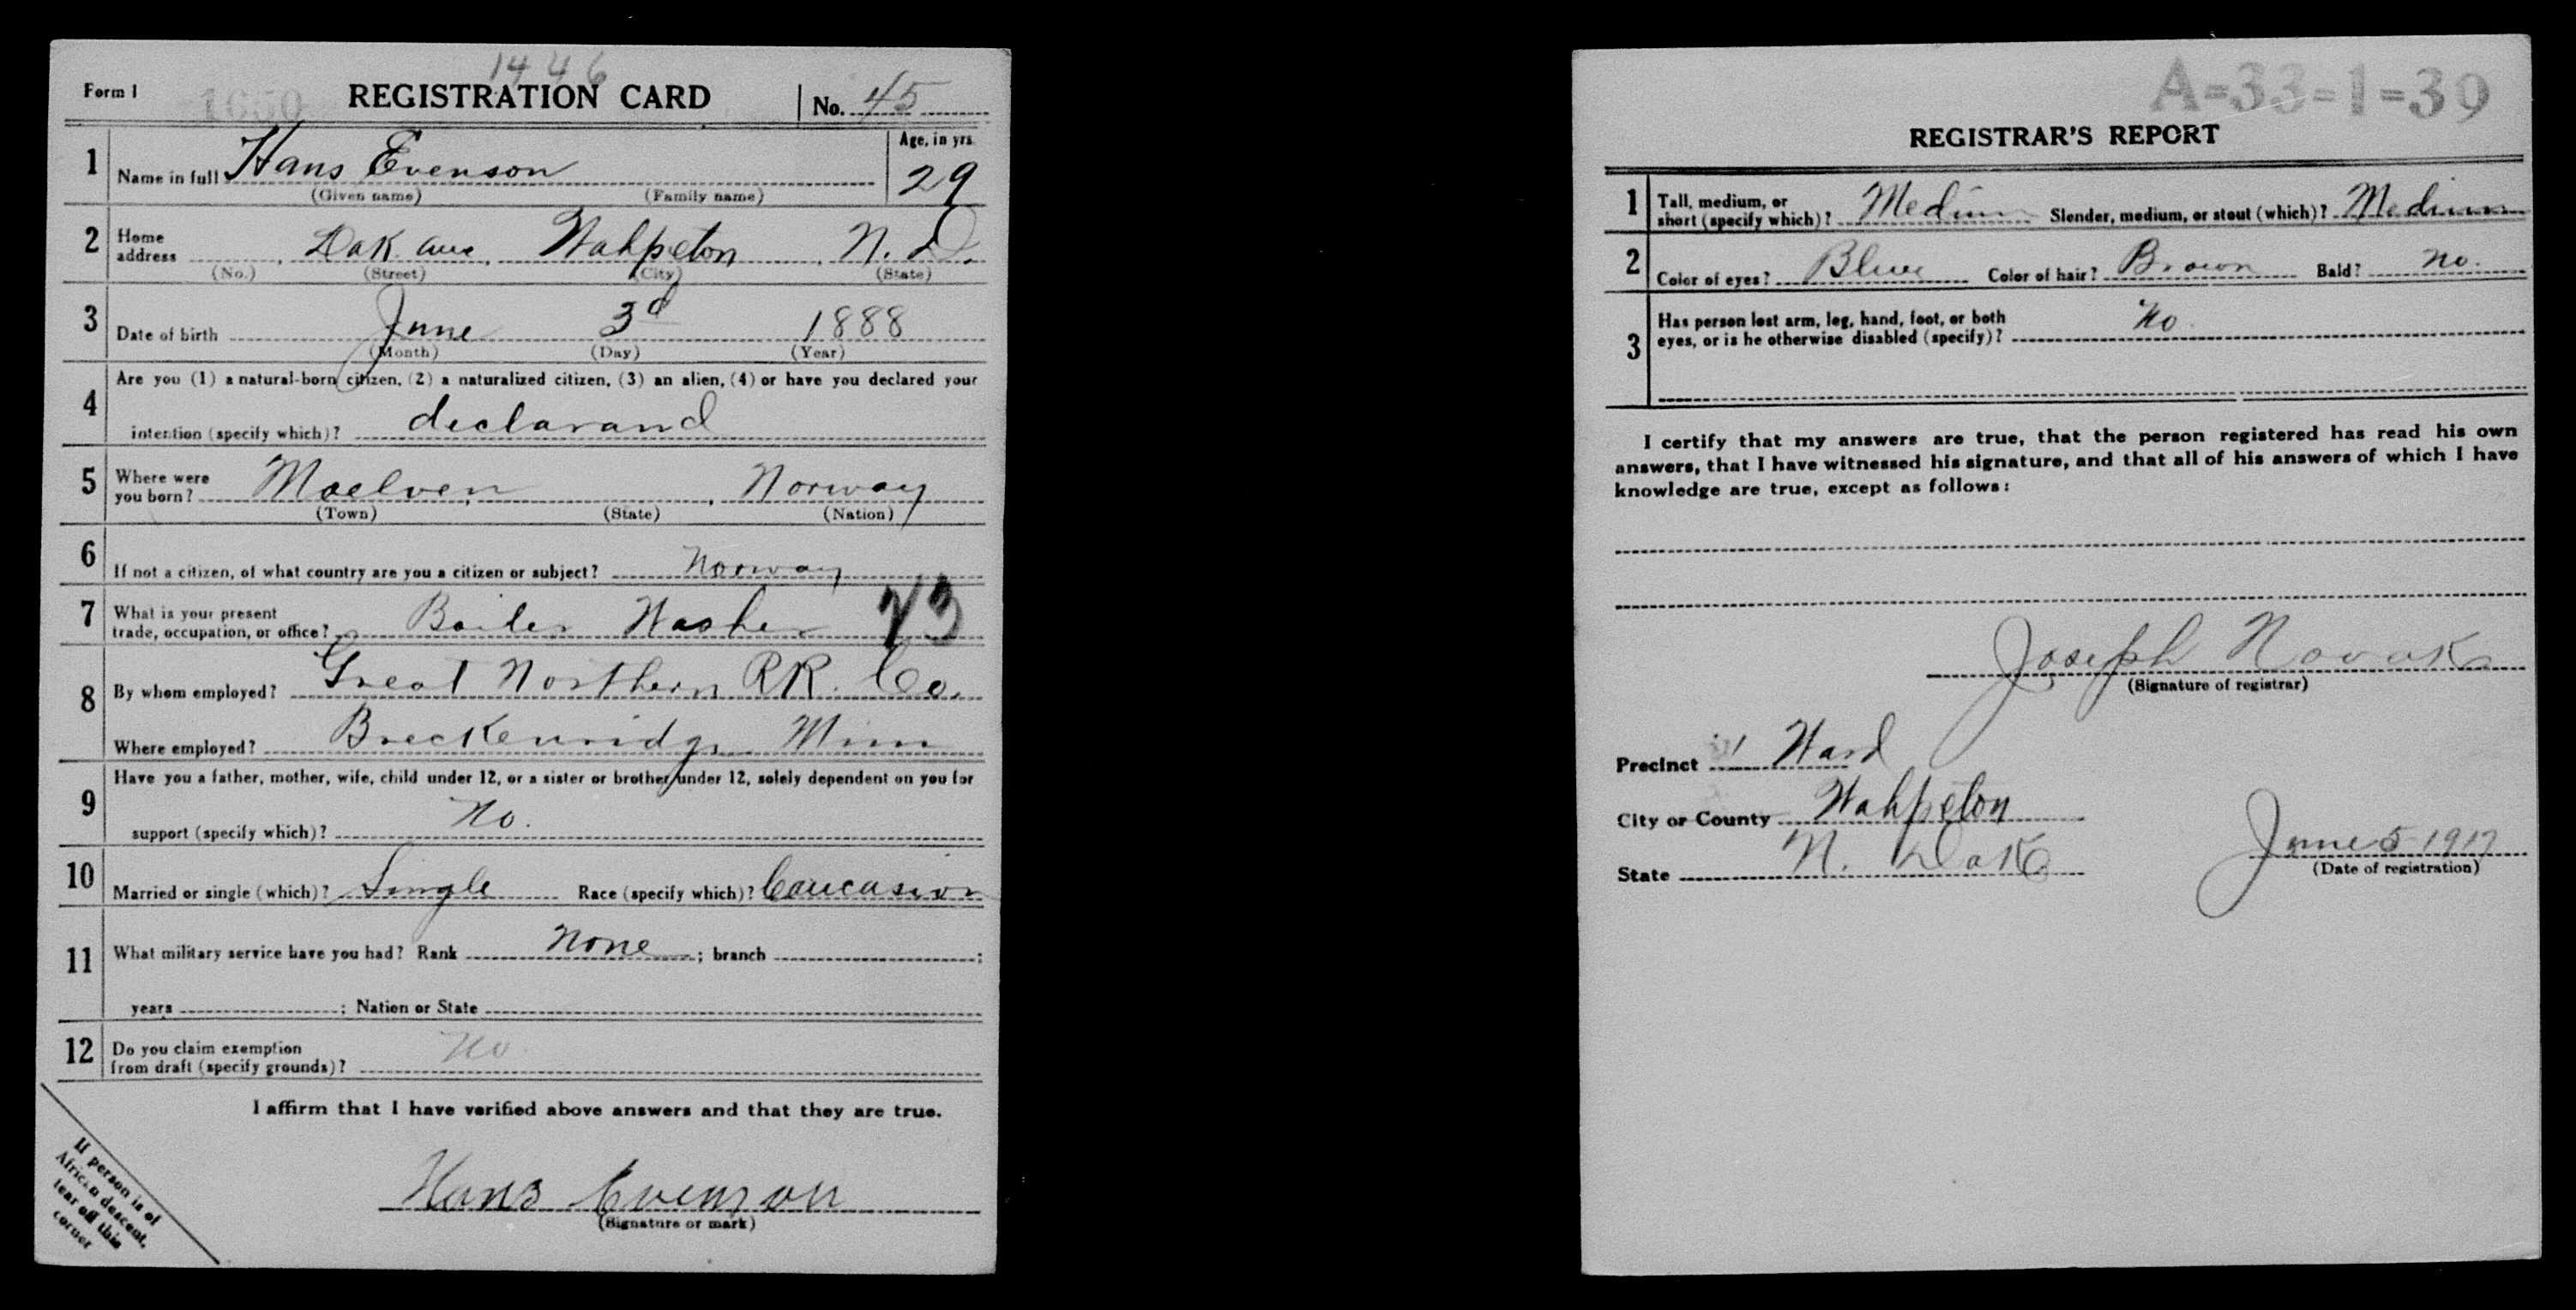 1446
Form 1 1650 REGISTRATION CARD No. 45
1 Name in full Hans Evenson Age, in yrs. 29
(Given name) (Family name)
2 Home address Dak. Ave, Wahpeton, N. D.
(No.) (Street) (City) (State)
3 Date of birth June 3d 1888
(Month) (Day) (Year)
4 Are you (1) a natural-born citizen, (2) a naturalized citizen, (3) an alien, (4) or have you declared your
intention (specify which)? declarand
5 Where were you born? Moelven, Norway
(Town) (State) (Nation)
6 If not a citizen, of what country are you a citizen or subject? Norway
7 What is your present
trade, occupation, or office? Boiler Washer 73
8 By whom employed? Great Northern RR. Co.
Where employed? Breckenridge Minn
9 Have you a father, mother, wife, child under 12, or a sister or brother under 12, solely dependent on you for
support (specify which)? No.
10 Married or single (which)? Single Race (specify which)? Caucasion
11 What military service have you had? Rank None ; branch ;
years ; Nation or State
12 Do you claim exemption
from draft (specify grounds)? No
I affirm that I have verified above answers and that they are true.
Hans Evenson
(Signature or mark)
If person is of
African descent,
tear off this
corner
A=33=1=39
REGISTRAR'S REPORT
1 Tall, medium, or
short (specify which)? Medium Slender, medium, or stout (which)? Medium
2 Color of eyes? Blue Color of hair? Brown Bald? no.
3 Has person lost arm, leg, hand, foot, or both
eyes, or is he otherwise disabled (specify)? No
I certify that my answers are true, that the person registered has read his own
answers, that I have witnessed his signature, and that all of his answers of which I have
knowledge are true, except as follows:
Joseph Novak
(Signature of registrar)
Precinct 1 Ward
City or County Wahpeton
State N. Dak June 5 1917
(Date of registration)